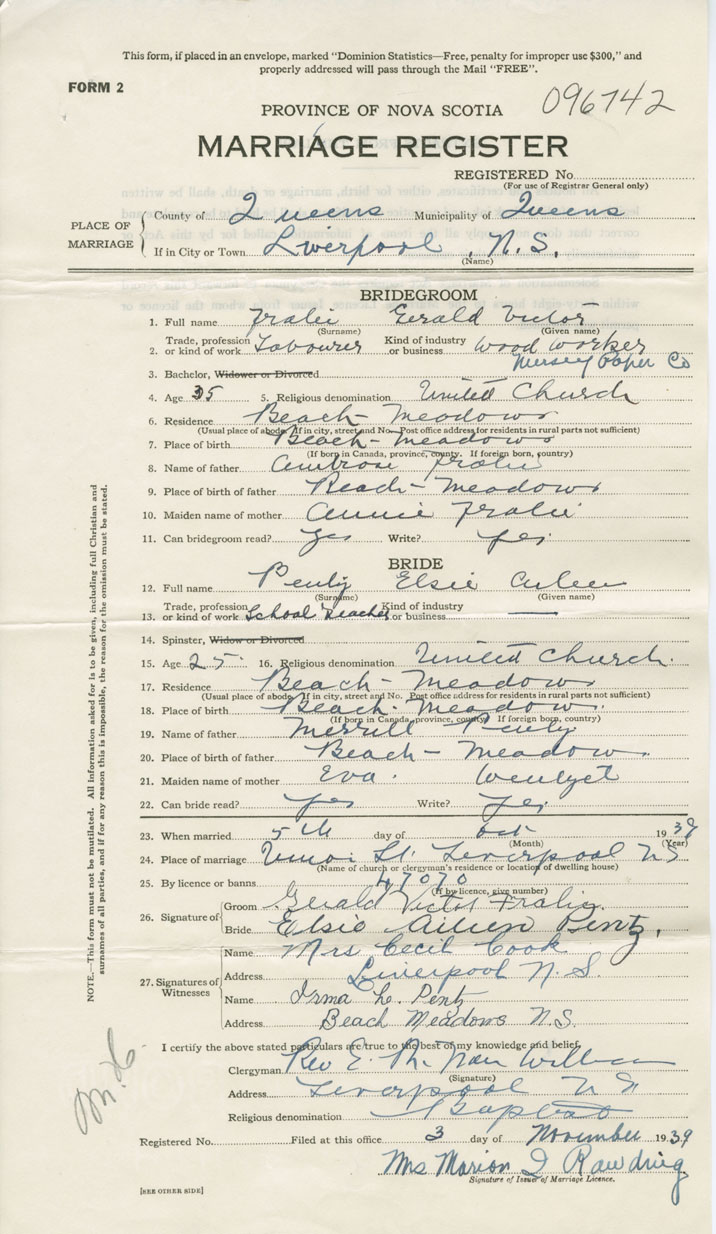 This form, if placed in an envelope, marked "Dominion Statistics—Free, penalty for improper use $300," and
properly addressed will pass through the Mail "FREE".
FORM 2
096742
PROVINCE OF NOVA SCOTIA
MARRIAGE REGISTER
REGISTERED No.
(For use of Registrar General only)
PLACE OF MARRIAGE
County of Queens Municipality of Queens
If in City or Town Liverpool, N.S.
(Name)
BRIDEGROOM
1. Full name Fralic Gerald Victor
(Surname) (Given name)
2. Trade, profession or kind of work Labourer Kind of industry or business Wood worker
Mersey Paper Co
3. Bachelor, Widower or Divorced
4. Age 35 5. Religious denomination United Church
6. Residence Beach-Meadows
(Usual place of abode. If in city, street and No. Post office address for residents in rural parts not sufficient)
7. Place of birth Beach-Meadows
(If born in Canada, province, county. If foreign born, country)
8. Name of father Ambrose Fralic
9. Place of birth of father Beach-Meadows
10. Maiden name of mother Annie Fralic
11. Can bridegroom read? Yes Write? Yes
BRIDE
12. Full name Pentz Elsie Aileen
(Surname) (Given name)
13. Trade, profession or kind of work School Teacher Kind of industry or business —
14. Spinster, Widow or Divorced
15. Age 25 16. Religious denomination United Church.
17. Residence Beach-Meadows
(Usual place of abode. If in city, street and No. Post office address for residents in rural parts not sufficient)
18. Place of birth Beach-Meadows.
(If born in Canada, province, county. If foreign born, country)
19. Name of father Merrill Pentz
20. Place of birth of father Beach-Meadows.
21. Maiden name of mother Eva.
22. Can bride read? Yes Write? Yes
23. When married 5th day of Oct 1939
(Month) (Year)
24. Place of marriage Union St. Liverpool NS
(Name of church or clergyman's residence or location of dwelling house)
25. By licence or banns 47070
(If by licence, give number)
26. Signature of
Groom Gerald Victor Fralic.
Bride Elsie Aileen Pentz.
27. Signatures of Witnesses
Name Mrs Cecil Cook
Address Liverpool N.S.
Name Irma L. Pentz
Address Beach Meadows N.S.
I certify the above stated particulars are true to the best of my knowledge and belief.
Clergyman Rev E.
(Signature)
Address Liverpool N S
Religious denomination Baptist
Registered No. Filed at this office 3 day of November 1939
Mrs Marion I Rawding
Signature of Issuer of Marriage Licence.
[SEE OTHER SIDE]
NOTE.—This form must not be mutilated. All information asked for is to be given, including full Christian and
surnames of all parties, and if for any reason this is impossible, the reason for the omission must be stated.